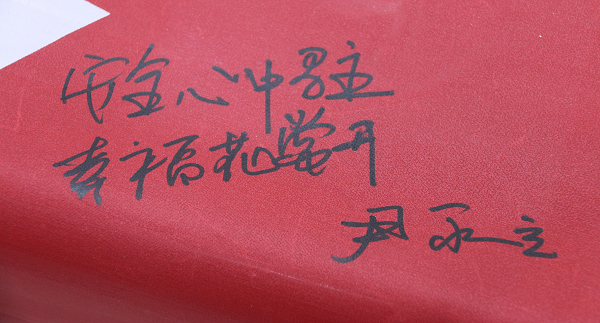 安全心中驻
幸福花常开
尹永立